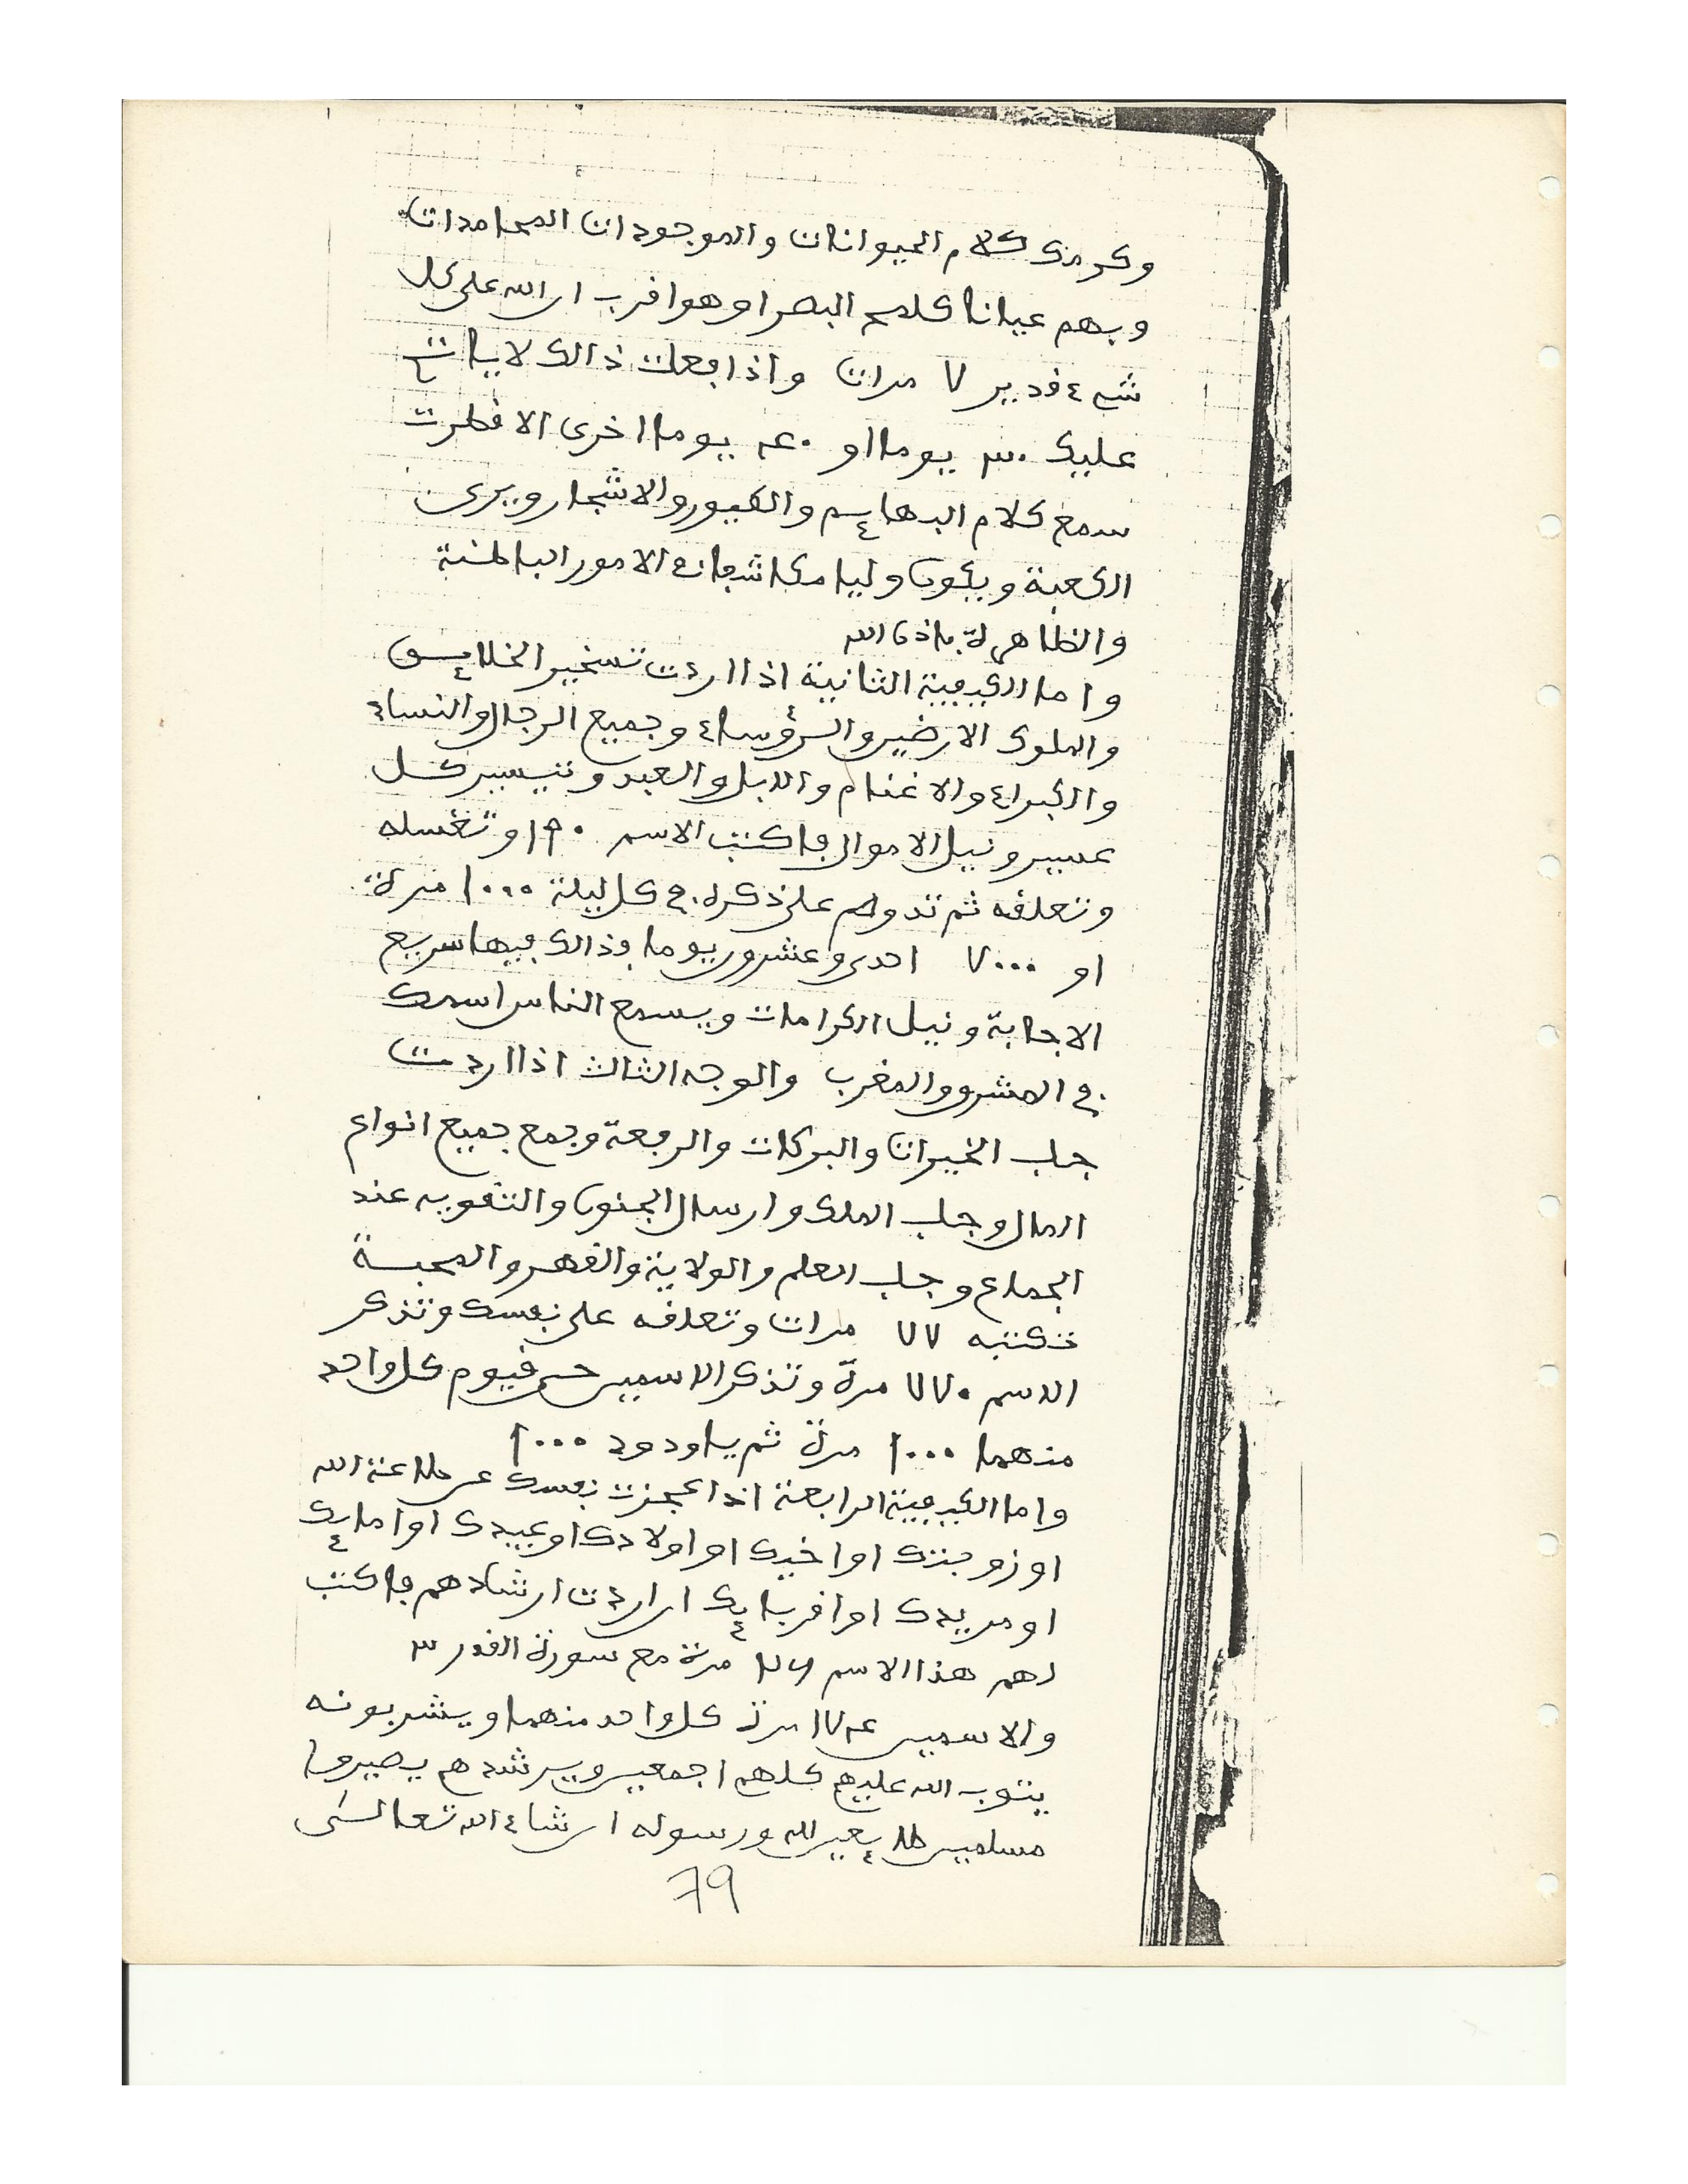 وكرمك كلام الحيوانات والموجودات الجامدات
وبهم عيانا كلمح البصر او هو اقرب ان الله على كل
شيء قدير ٧ مرات واذا فعلت ذالك لا يات
عليك ٣٠ يوما او ٤٠ يوما اخرى الا فطرت
سمع كلام البهايم والطيور والاشجار ويرى
الكعبة ويكون وليا مكاشفا في الامور الباطنية
والظاهرة باذن الله
واما الكيفية الثانية اذا اردت تسخير الخلايق
والملوك الارضين والرؤساء وجميع الرجال والنساء
والكبراء والاغنام والابل والعبد وتيسير كل
عسير ونيل الاموال فاكتب الاسم ١٩٠ وتغسله
وتعلقه ثم تدوام على ذكره في كل ليلة ١٠٠٠ مرة
او ٧٠٠٠ احدى وعشرون يوما وذالك فيها سريع
الاجابة ونيل الكرامات ويسمع الناس اسمك
في المشرق والمغرب والوجه الثالث اذا اردت
جلب الخيرات والبركات والرفعة وجمع جميع انواع
المال وجلب الملك وارسال الجنون والتقويه عند
الجماع وجلب العلم والولاية والقهر والمحبة
تكتبه ٧٧ مرات وتعلقه على نفسك وتذكر
الاسم ٧٧٠ مرة وتذكر الاسمين حي قيوم كل واحد
منهما ١٠٠٠ مرة ثم ياودود ١٠٠٠
واما الكيفية الرابعة اذا عجزت نفسك عن طاعة الله
او زوجتك او اخيك او اولادك او عبيدك او امايك
او مريدك او اقربايك ان اردت ارشادهم فاكتب
لهم هذا الاسم مرة مع سورة القدر ٣
والاسمين ١٧٤ مرة كل واحد منهما ويشربونه
يتوب الله عليهم كلهم اجمعين ويرشدهم يصيروا
مسلمين طايعين لله ورسوله ان شاء الله تعالى
79